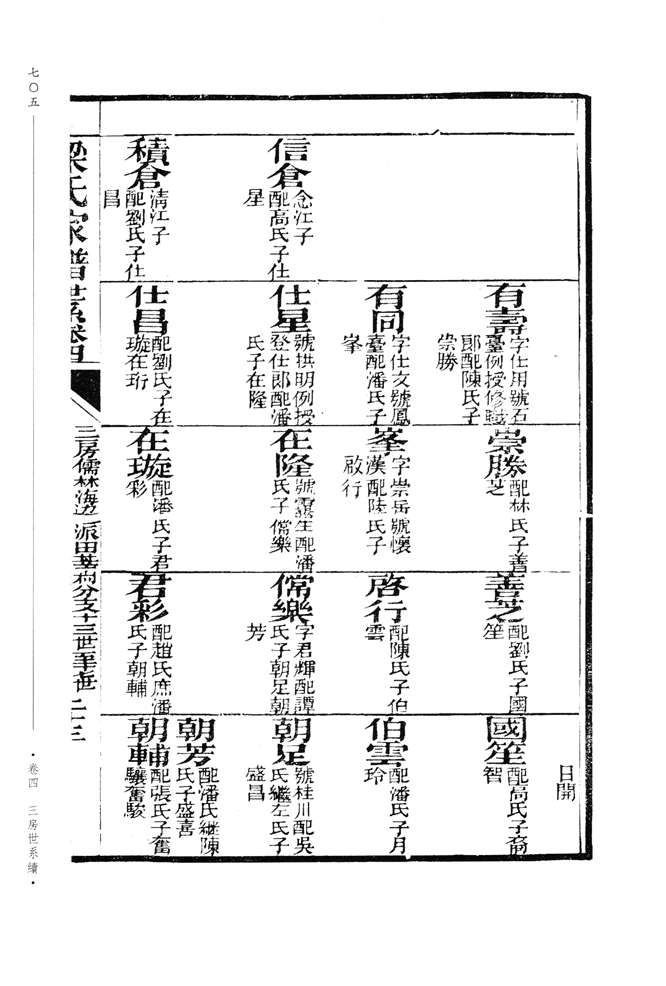 七〇五
信倉
念江子
配高氏子仕
星
積倉
淸江子
配劉氏子仕
昌
有壽
字仕用號石
臺例授修職
郞配陳氏子
崇勝
有同
字仕文號鳳
臺配潘氏子
峯
仕星
號拱明例授
登仕郞配潘
氏子在隆
仕昌
配劉氏子在
璇在珩
崇勝
配林氏子善
芝
峯
字崇岳號懷
漢配陸氏子
啟行
在隆
配潘
氏子常樂
在璇
配潘氏子君
彩
善芝
配劉氏子國
笙
啓行
配陳氏子伯
雲
常樂
字君輝配譚
氏子朝足朝
芳
君彩
配趙氏庶潘
氏子朝輔
日開
國笙
配高氏子裔
智
伯雲
配潘氏子月
玲
朝足
號桂川配吳
氏繼左氏子
盛昌
朝芳
配潘氏繼陳
氏子盛喜
朝輔
配張氏子奮
驤奮駿
梁氏家譜世系卷四
三房儒林海邊派田基村分支十三世至十七世 二十三
·卷四 三房世系續·